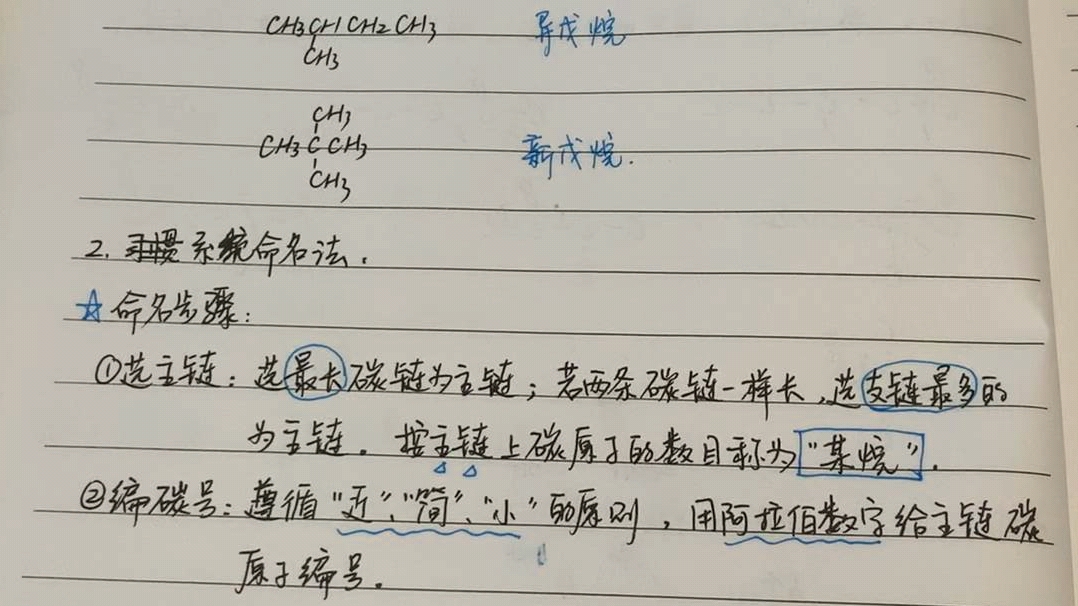 CH3CHCH2CH3 异戊烷
CH3
CH3
CH3CCH3 新戊烷.
CH3
2. 习惯系统命名法.
☆命名步骤:
①选主链:选最长碳链为主链;若两条碳链一样长,选支链最多的
为主链。按主链上碳原子的数目称为"某烷".
②编碳号:遵循"近"、"简"、"小"的原则,用阿拉伯数字给主链碳
原子编号.